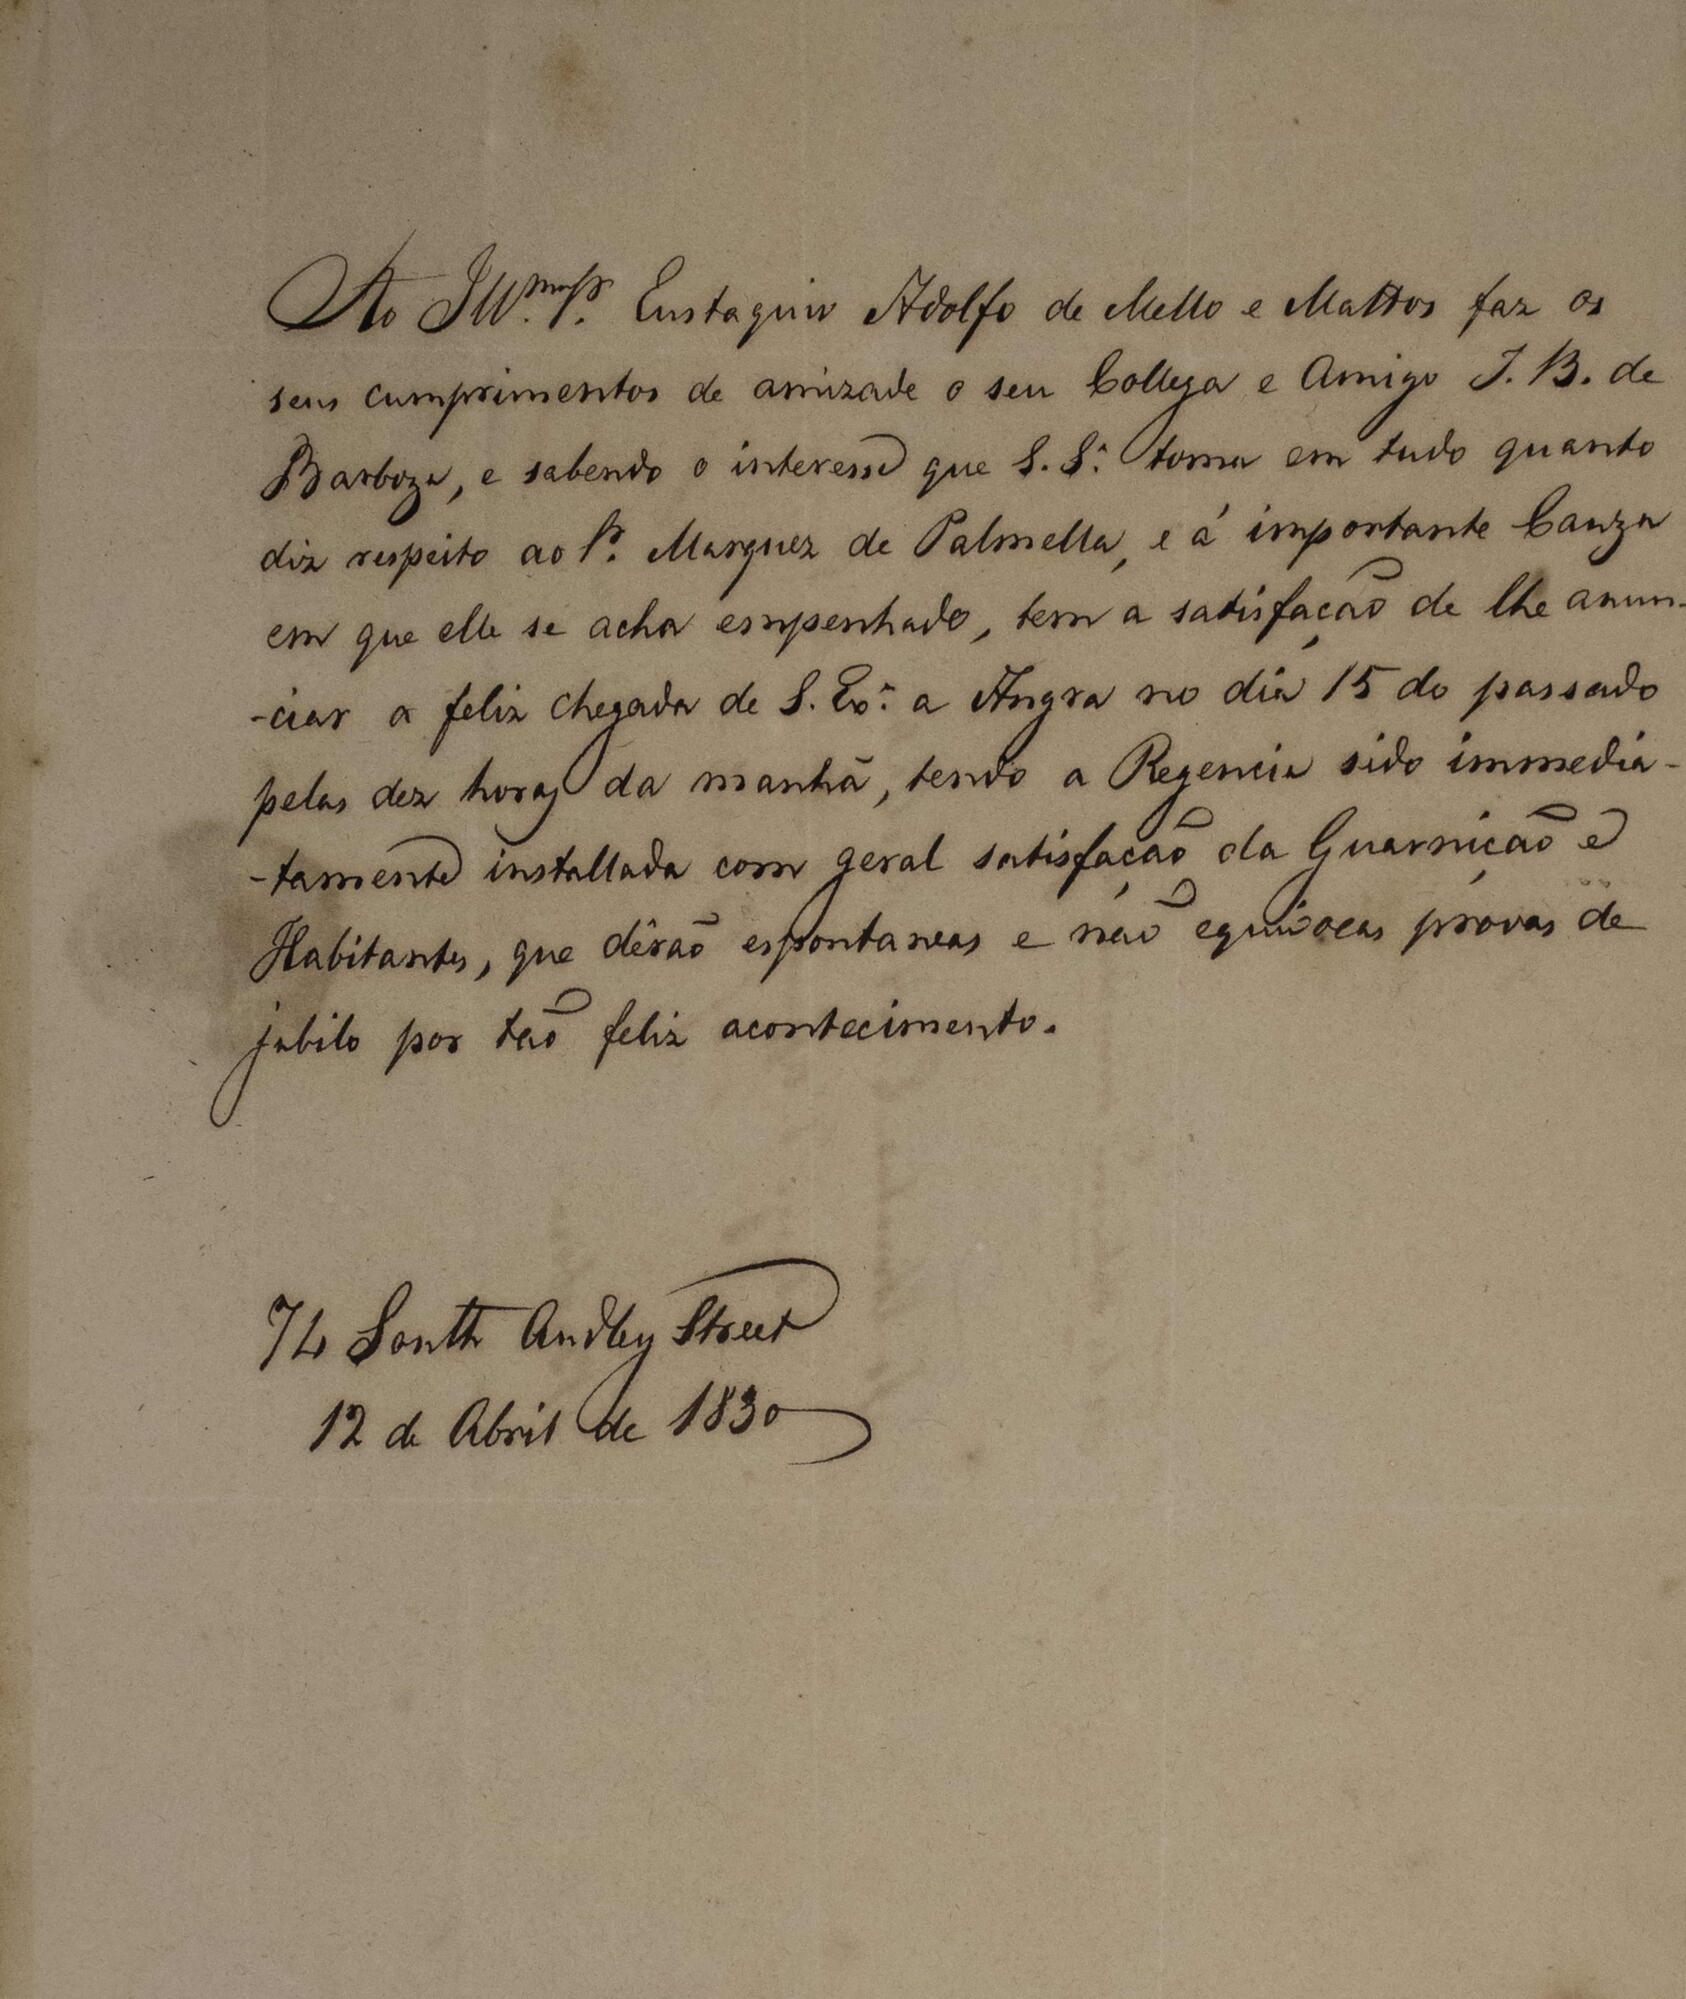 Ao Illmo. Sr. Eustaquio Adolfo de Mello e Mattos faz os
seus cumprimentos de amizade o seu Collega e Amigo J. B. de
Barboza, e sabendo o interesse que S. Sa. toma em tudo quanto
diz respeito ao Sr. Marquez de Palmella, e á importante Cauza
em que elle se acha empenhado, tem a satisfação de lhe anun-
-ciar a feliz chegada de S. Exa. a Angra no dia 15 do passado
pelas dez horas da manhã, tendo a Regencia sido immedia-
-tamente installada com geral satisfação da Guarnição e
Habitantes, que dêrão espontaneas e não equivocas provas de
jubilo por tão feliz acontecimento.
74 South Audley Street
12 de Abril de 1830